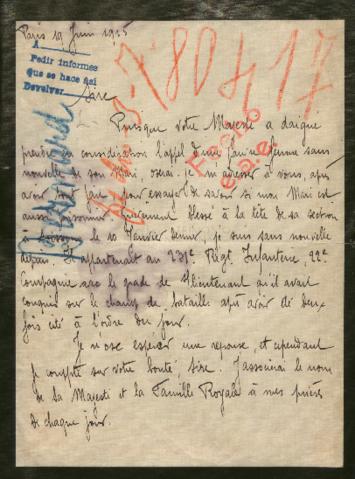 Paris 19 Juin 1915
A
Pedir informes
que se hace así
Devolver
Sire
Puisque votre Majesté a daigné
prendre en considération l'appel d'une jeune femme sans
nouvelle de son Mari, oserai-je m'adresser à vous, après
avoir tout fait pour essayer de savoir si mon Mari est
aussi prisonnier. Grièvement blessé à la tête de sa section
à le 10 Janvier dernier, je suis sans nouvelle
depuis. Il appartenait au 231e Régt Infanterie, 22e
Compagnie avec le grade de S/lieutenant qu'il avait
conquis sur le champ de bataille après avoir été deux
fois cité à l'ordre du jour.
Je n'ose espérer une réponse, et cependant
je compte sur votre bonté, Sire. J'associerai le nom
de Sa Majesté et la Famille Royale à mes prières
de chaque jour.